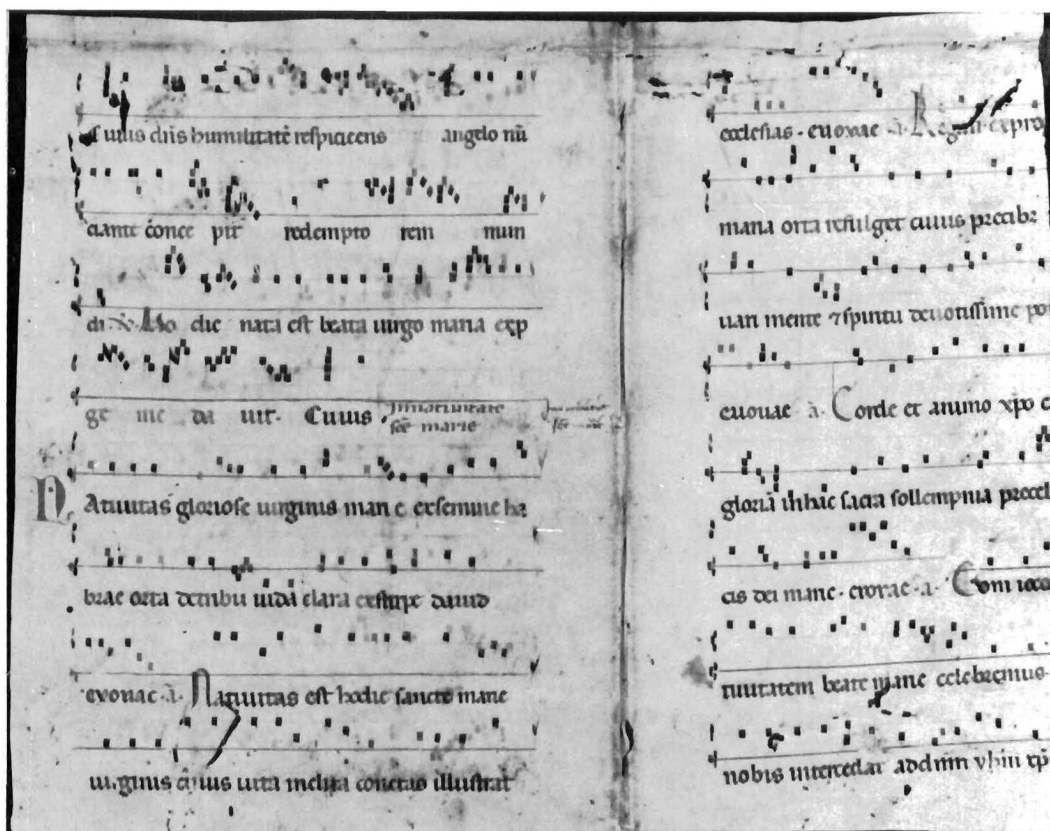 uius dns humilitatē respiciens angelo nū
ciante conce pit redempto rem mun
di Ho die nata est beata uirgo maria exp
ge nie da uit. Cuius In natiuitate
sce marie
Natiuitas gloriose uirginis marie exsemine ha
brae orta detribu iuda clara exstirpe dauid
euouae a Natiuitas est hodie sancte marie
uirginis cuius uita inclita cunctas illustrat
ecclesias. euouae a Regali expro
maria orta refulget cuius precibz
mente 7 spiritu deuotissime
euouae a Corde et animo xpo
gloriā inhac sacra sollempnia precel
cis dei marie. euouae. a.
tiuitatem beate marie celebremus
nobis intercedat addnm